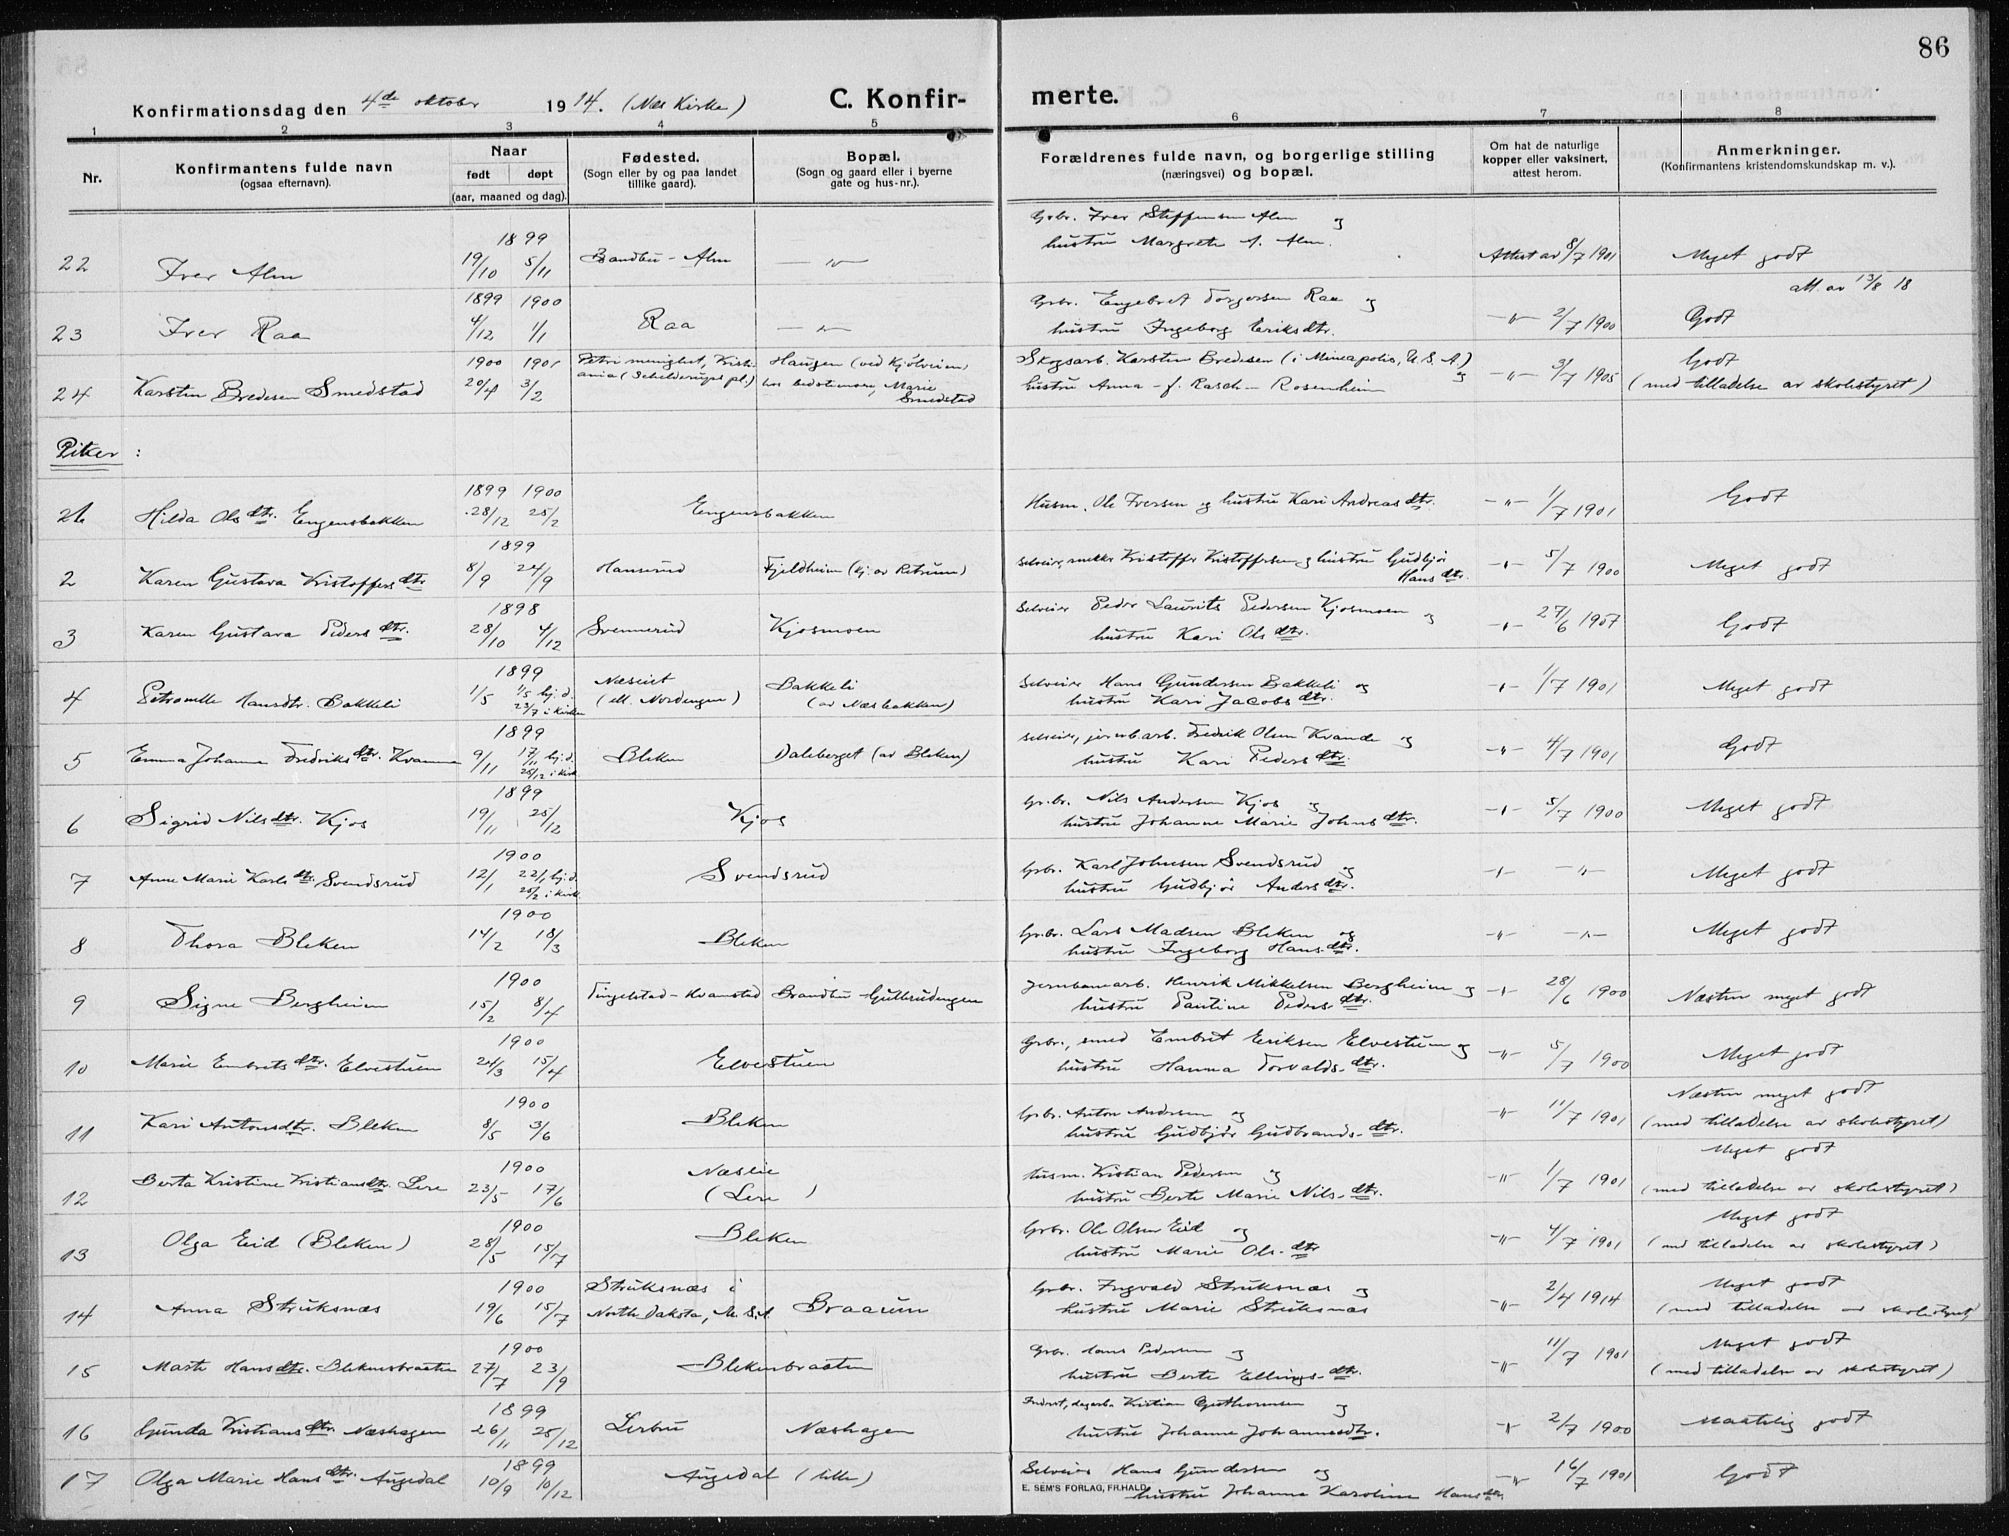 86
Konfirmationsdag den 4de oktober 1914. (Næs Kirke) C. Konfir- merte.
1 2 3 4 5 6 7 8
Nr. Konfirmantens fulde navn (ogsaa efternavn). Naar født døpt (aar, maaned og dag). Fødested. (Sogn eller by og paa landet tillike gaard). Bopæl. (Sogn og gaard eller i byerne gate og hus-nr.). Forældrenes fulde navn, og borgerlige stilling (næringsvei) og bopæl. Om hat de naturlige kopper eller vaksinert, attest herom. Anmerkninger. (Konfirmantens kristendomskundskap m. v.).
1899 Grbr. Iver Steffensen Alm og
22 Iver Alm 19/10 5/11 Brandbu - Alm — " — hustru Margrete A. Alm. Attest av 8/7 1901 Meget godt
att. av 13/8 18
1899 1900 Grbr. Engebret Torgersen Raa og
23 Iver Raa 4/12 1/1 Raa — " — hustru Ingeborg Eriksdtr. - " - 2/7 1900 Godt
1900 1901 Petri menighet, Kristi- Haugen (ved Kjølveien) Skogsarb. Karsten Bredesen (i Mineapolis, U.S.A) og Godt
24 Karsten Bredesen Smedstad 20/4 3/2 ania (Schilderups pl.) hos bedstemor, Marie Smedstad hustru Anna - f. Rasch - Rosenheim - " - 3/7 1905 (med tilladelse av skolestyret)
Piker :
1899 1900
1 Hilda Olsdtr. Engensbakken 28/12 25/2 Engensbakken Husm. Ole Iversen og hustru Kari Andreasdtr. - " - 1/7 1901 Godt
1899
2 Karen Gustava Kristoffersdtr 8/9 24/9 Hanserud Fjeldheim Kristoffer Kristoffersen og hustru Gudbjør Hansdtr. - " - 5/7 1900 Meget godt
1898 Selveier Peder Laurits Pedersen Kjosmoen og
3 Karen Gustava Pedersdtr. 28/10 4/12 Svennerud Kjosmoen hustru Kari Olsdtr. - " - 27/6 1907 Godt
1899 Næseiet Bakkeli Selveier Hans Gundersen Bakkeli og
4 Petronelle Hansdtr. Bakkeli 1/5 1/5 hj.d. 23/7 i kirken (ell. Nordengen) (av Næsbakken) hustru Kari Jacobsdtr. - " - 1/7 1901 Meget godt
1899 selveier, jernb.arb. Fredrik Olsen Kvande og
5 Emma Johanne Fredriksdtr. 9/11 17/11 hj.d. 25/12 i kirk. Bleken Daleberget (av Bleken) hustru Kari Pedersdtr. - " - 4/7 1901 Godt
1899 Gr.br. Nils Andersen Kjos og
6 Sigrid Nilsdtr. Kjos 19/11 25/12 Kjos hustru Johanne Marie Johnsdtr. - " - 5/7 1900 Meget godt
1900 Grbr. Karl Johnsen Svendsrud og
7 Anne Marie Karlsdtr. Svendsrud 12/1 22/1 hj.d. 25/2 i kirk. Svendsrud hustru Gudbjør Andersdtr. - " - - " - Meget godt
1900 Gr.br. Lars Madsen Bleken og
8 Thora Bleken 14/2 18/3 Bleken hustru Ingeborg Hansdtr. - " - - " - Meget godt
1900 Jernbanearb. Henrik Mikkelsen Bergheim og
9 Signe Bergheim 15/2 8/4 Tingelstad - Kvamstad Brandbu Gulbrudengen hustru Pauline Pedersdtr. - " - 28/6 1900 Næsten meget godt
1900 Grbr., smed Embret Eriksen Elvestuen og
10 Marie Embretsdtr. Elvestuen 24/3 15/4 Elvestuen hustru Hanna Torvalds-dtr. - " - 5/7 1900 Meget godt
1900 Grbr. Anton Andersen og Næsten meget godt
11 Kari Antonsdtr. Bleken 8/5 3/6 Bleken hustru Gudbjør Gudbrands-dtr. - " - 11/7 1901 (med tilladelse av skolestyret)
1900 Næslie husm. Kristian Pedersen og Meget godt
12 Berta Kristine Kristiansdtr. Lere 23/5 17/6 (Lere) hustru Berte Marie Nils-dtr. - " - 1/7 1901 (med tilladelse av skolestyret)
1900 Grbr. Ole Olsen Eid og Meget godt
13 Olga Eid (Bleken) 28/5 15/7 Bleken hustru Marie Ols-dtr - " - 4/7 1901 (med tilladelse av skolestyret)
1900 Struksnæs i Grbr. Ingvald Struksnæs og Meget godt
14 Anna Struksnæs 19/6 15/7 North Dakota, U.S.A. Braaum hustru Marie Struksnæs - " - 2/4 1914 (med tilladelse av skolestyret)
1900 Grbr. Hans Pedersen og Meget godt
15 Marte Hansdtr. Blekensbraaten 27/7 23/9 Blekenbraaten hustru Berte Ellings-dtr. - " - 11/7 1901 (med tilladelse av skolestyret)
1899 Kristian Guthormsen og
16 Gunda Kristiansdtr. Næshagen 26/11 25/12 Lerbru Næshagen hustru Johanne Johannesdtr. - " - 2/7 1900 Maatelig godt
1899 Selveier Hans Gundersen og
17 Olga Marie Hansdtr. Augedal 10/9 10/12 Augedal (lille) hustru Johanne Karoline Hansdtr. - " - 16/7 1901 Godt
E. SEM'S FORLAG, FR.HALD